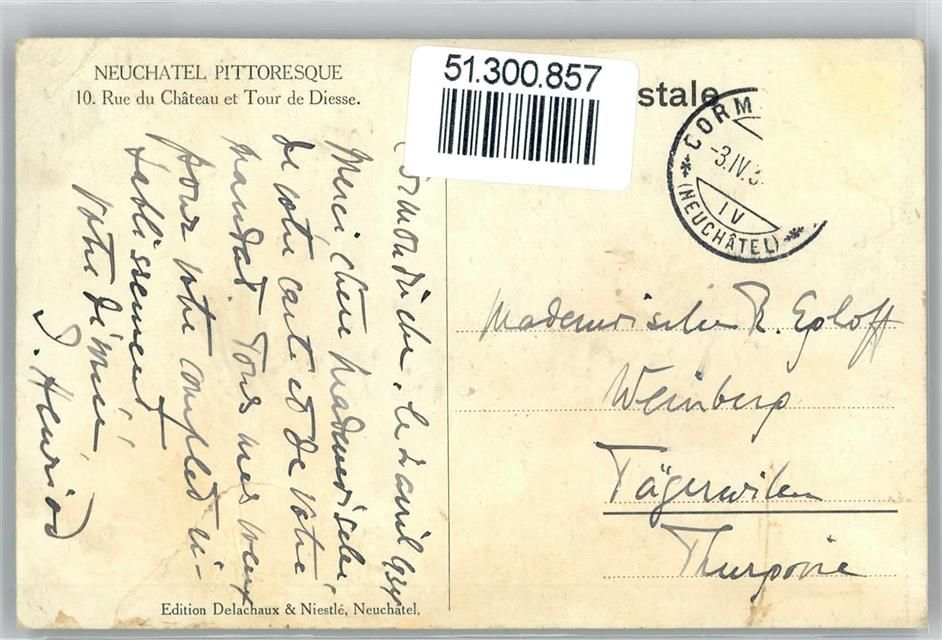 NEUCHATEL PITTORESQUE
10. Rue du Château et Tour de Diesse.
51.300.857
stale
CORM
-3.IV.3
IV
(NEUCHÂTEL)
Cormondrèche, le 2 avril 934
Merci chère Mademoiselle,
de votre carte et de votre
mandat. Tous mes vœux
pour votre complet ré-
tablissement
Votre dévouée
Henriod
Mademoiselle R. Egloff
Weinberg
Tägerwilen
Thurgovie
Edition Delachaux & Niestlé, Neuchâtel.